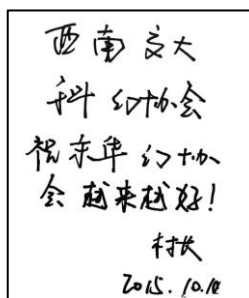 西南交大
科幻协会
祝东华幻协
会越来越好!
村长
2015.10.18